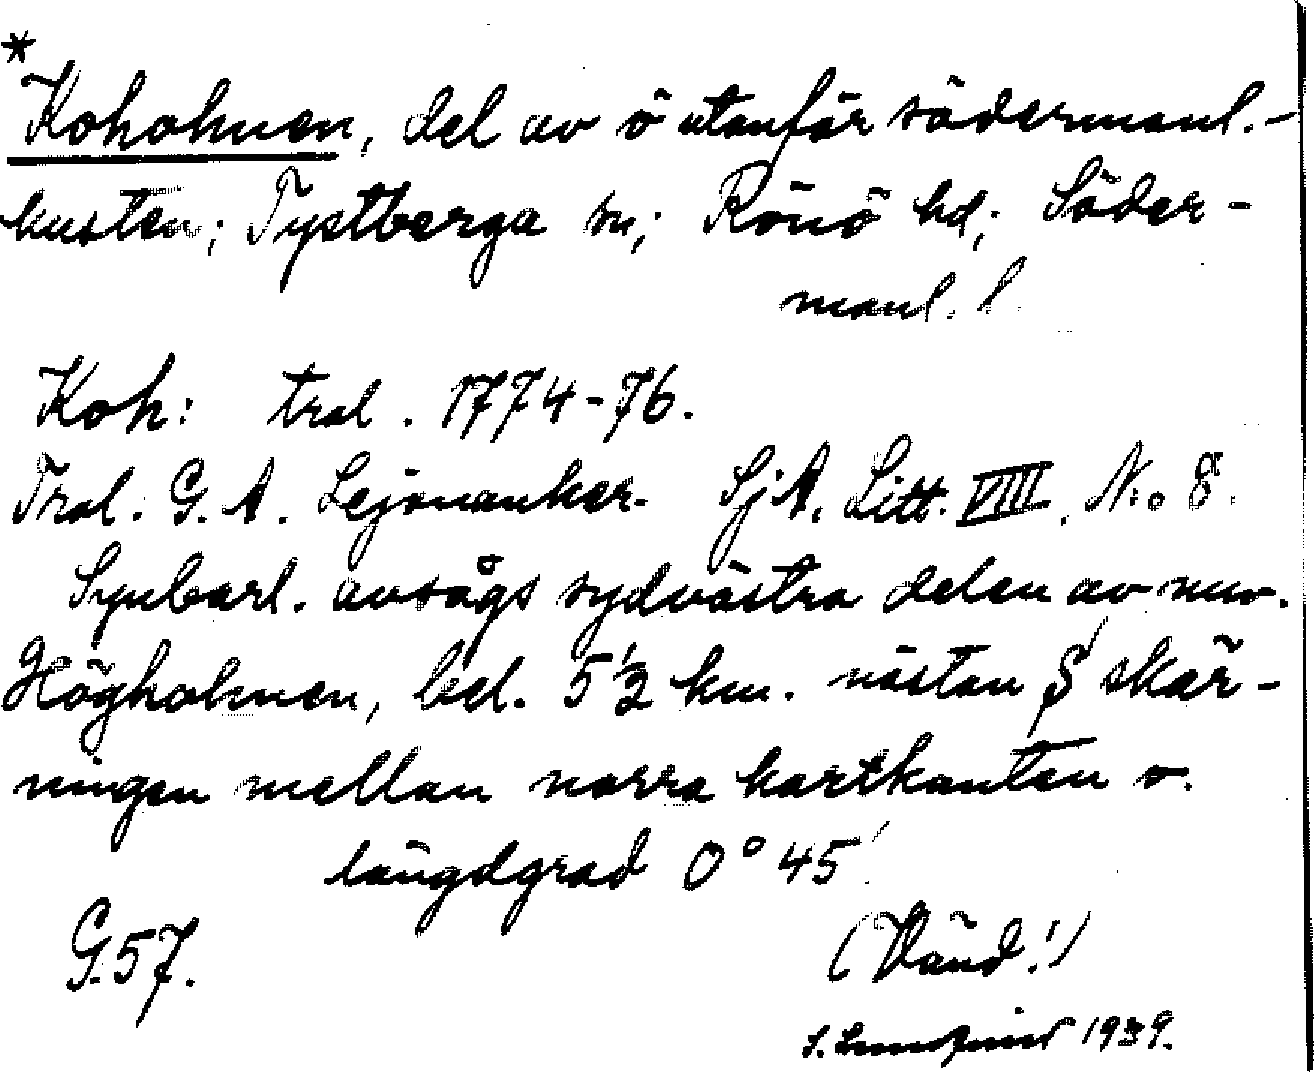 *
Koholmen, del av ö utanför södermanl.-
kusten; Tystberga sn; Rönö hd; Söder-
manl. l.
Koh: tral. 1774-76.
Tral. G. A. Lejonanker. SjA. Litt. VIII. No 8.
Synbarl. avsågs sydvästra delen av nuv.
Högholmen, bel. 5 1/2 km. nästan S skär-
ningen mellan norra kartkanten o.
längdgrad 0° 45'
G. 57.
(Vänd!)
S. 1939.